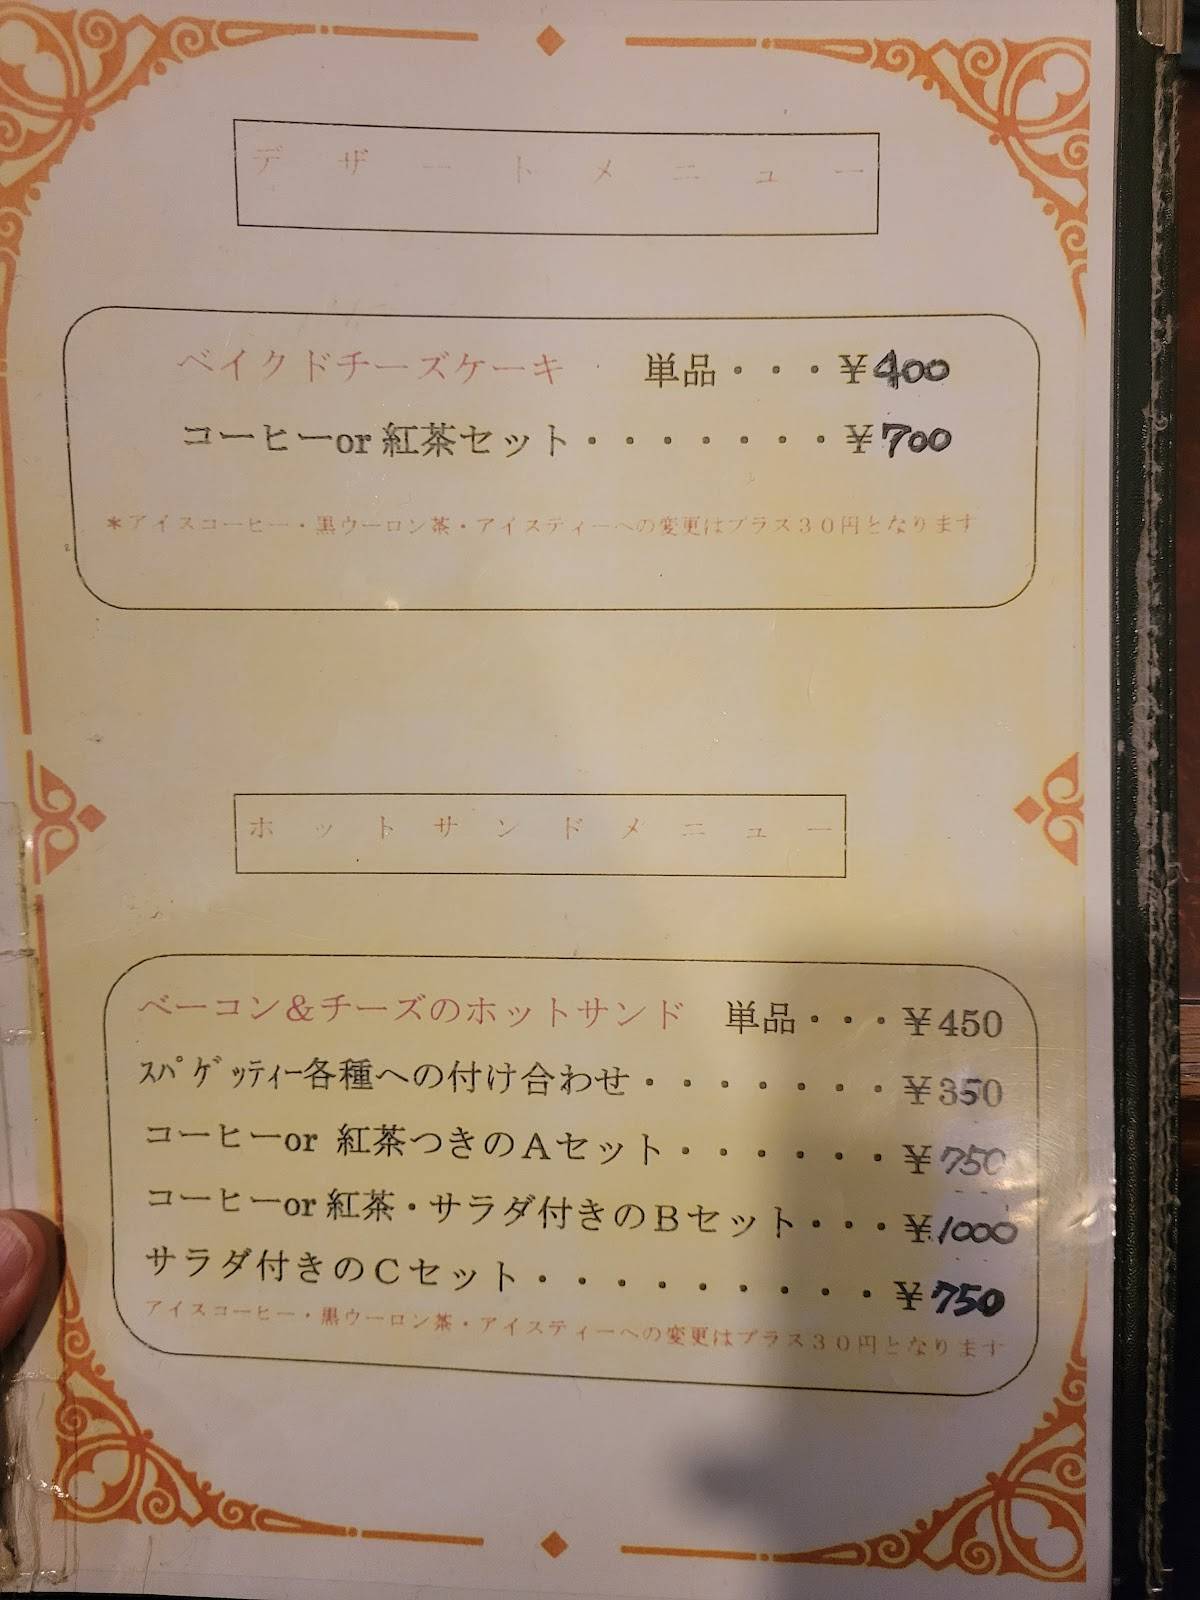 デザートメニュー
ベイクドチーズケーキ 単品・・・￥400
コーヒーor 紅茶セット・・・・・・・￥700
＊アイスコーヒー・黒ウーロン茶・アイスティーへの変更はプラス３０円となります
ホットサンドメニュー
ベーコン＆チーズのホットサンド 単品・・・￥450
ｽﾊﾟｹﾞｯﾃｨｰ各種への付け合わせ・・・・・・・￥350
コーヒーor 紅茶つきのＡセット・・・・・・￥750
コーヒーor 紅茶・サラダ付きのＢセット・・・￥1000
サラダ付きのＣセット・・・・・・・・・￥750
アイスコーヒー・黒ウーロン茶・アイスティーへの変更はプラス３０円となります